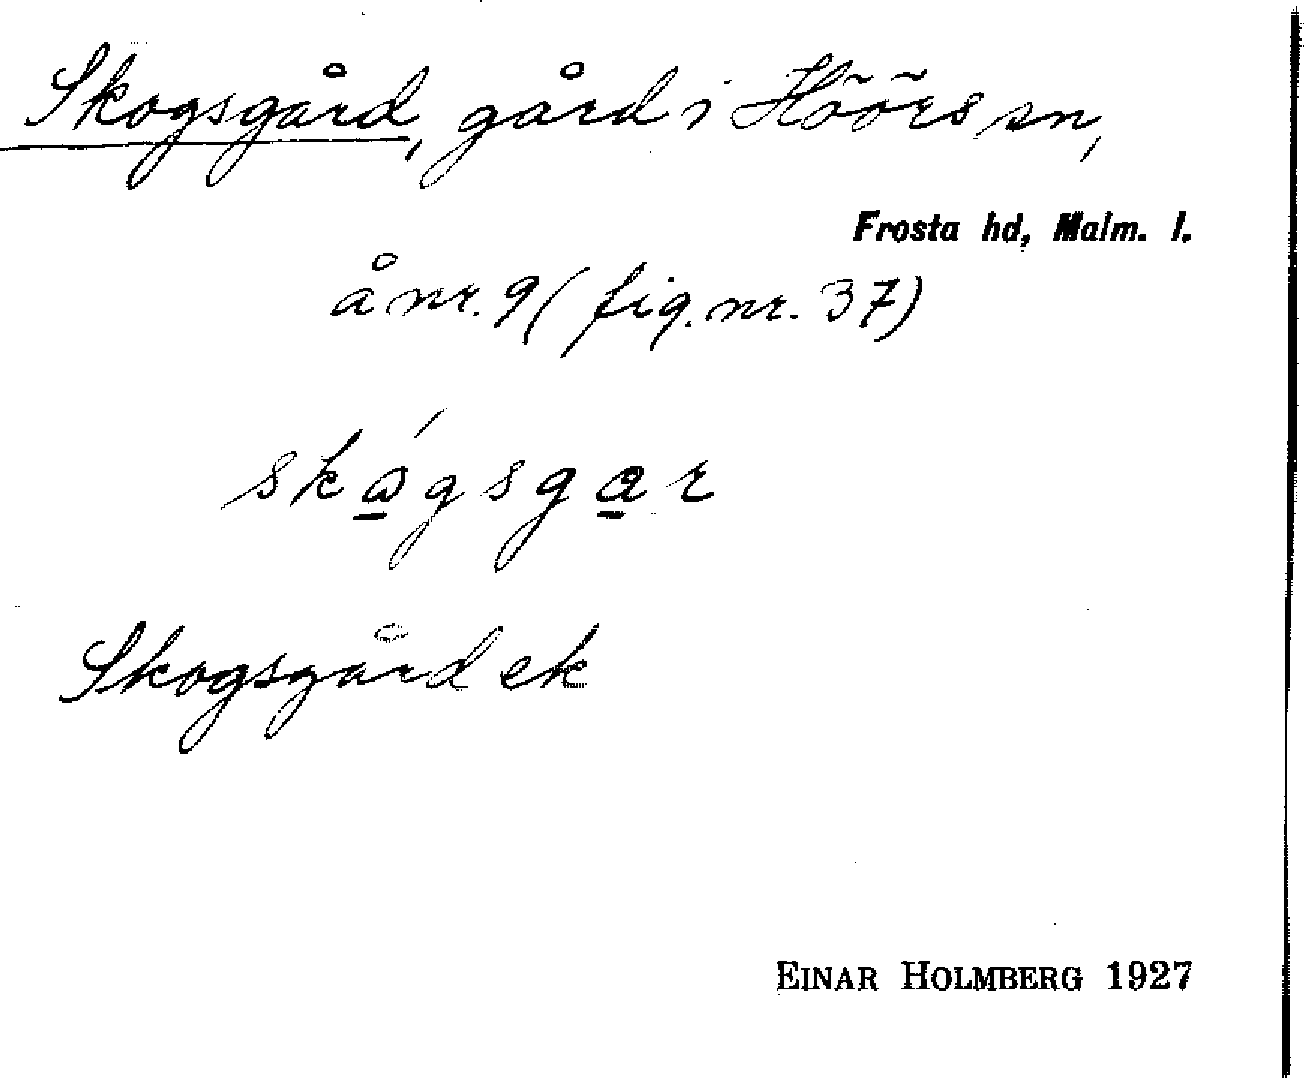 Skogsgård, gård i Höörs sn,
Frosta hd, Malm. l.
å nr. 9 (fig. nr. 37)
skώ̱gsga̱r
Skogsgård ek
EINAR HOLMBERG 1927